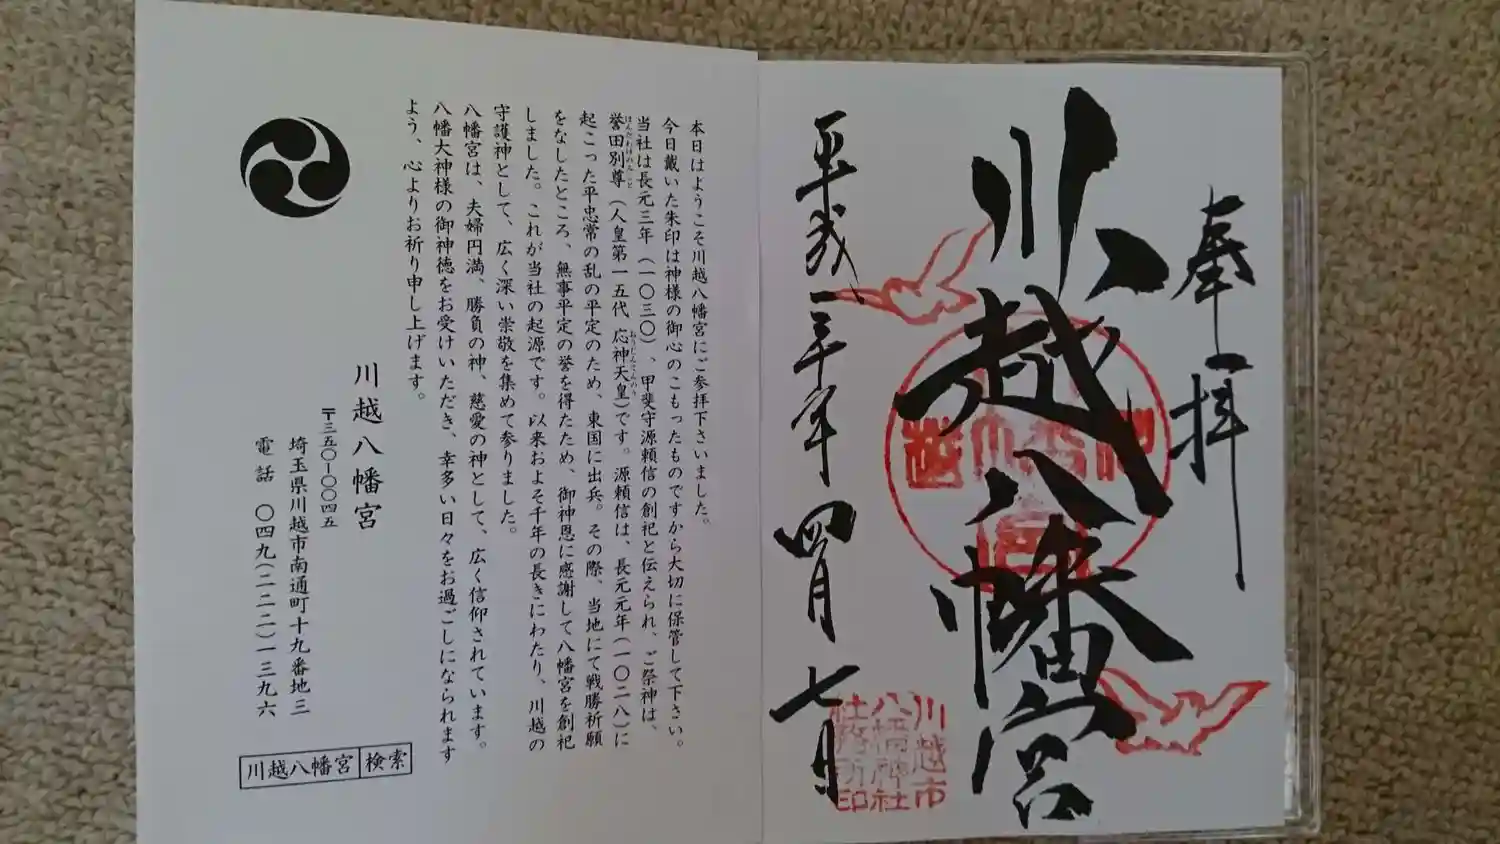 奉拝
川越八幡宮
平成三十年四月七日
川越市
八幡神社
社務所印
本日はようこそ川越八幡宮にご参拝下さいました。
今日戴いた朱印は神様の御心のこもったものですから大切に保管して下さい。
当社は長元三年（一〇三〇）、甲斐守源頼信の創祀と伝えられ、ご祭神は、
誉田別尊（人皇第一五代　応神天皇）です。源頼信は、長元元年（一〇二八）に
起こった平忠常の乱の平定のため、東国に出兵。その際、当地にて戦勝祈願
をなしたところ、無事平定の誉を得たため、御神恩に感謝して八幡宮を創祀
しました。これが当社の起源です。以来およそ千年の長きにわたり、川越の
守護神として、広く深い崇敬を集めて参りました。
八幡宮は、夫婦円満、勝負の神、慈愛の神として、広く信仰されています。
八幡大神様の御神徳をお受けいただき、幸多い日々をお過ごしになられます
よう、心よりお祈り申し上げます。
川越八幡宮
〒三五〇-〇〇四五
埼玉県川越市南通町十九番地三
電話　〇四九（二二二）一三九六
川越八幡宮 検索